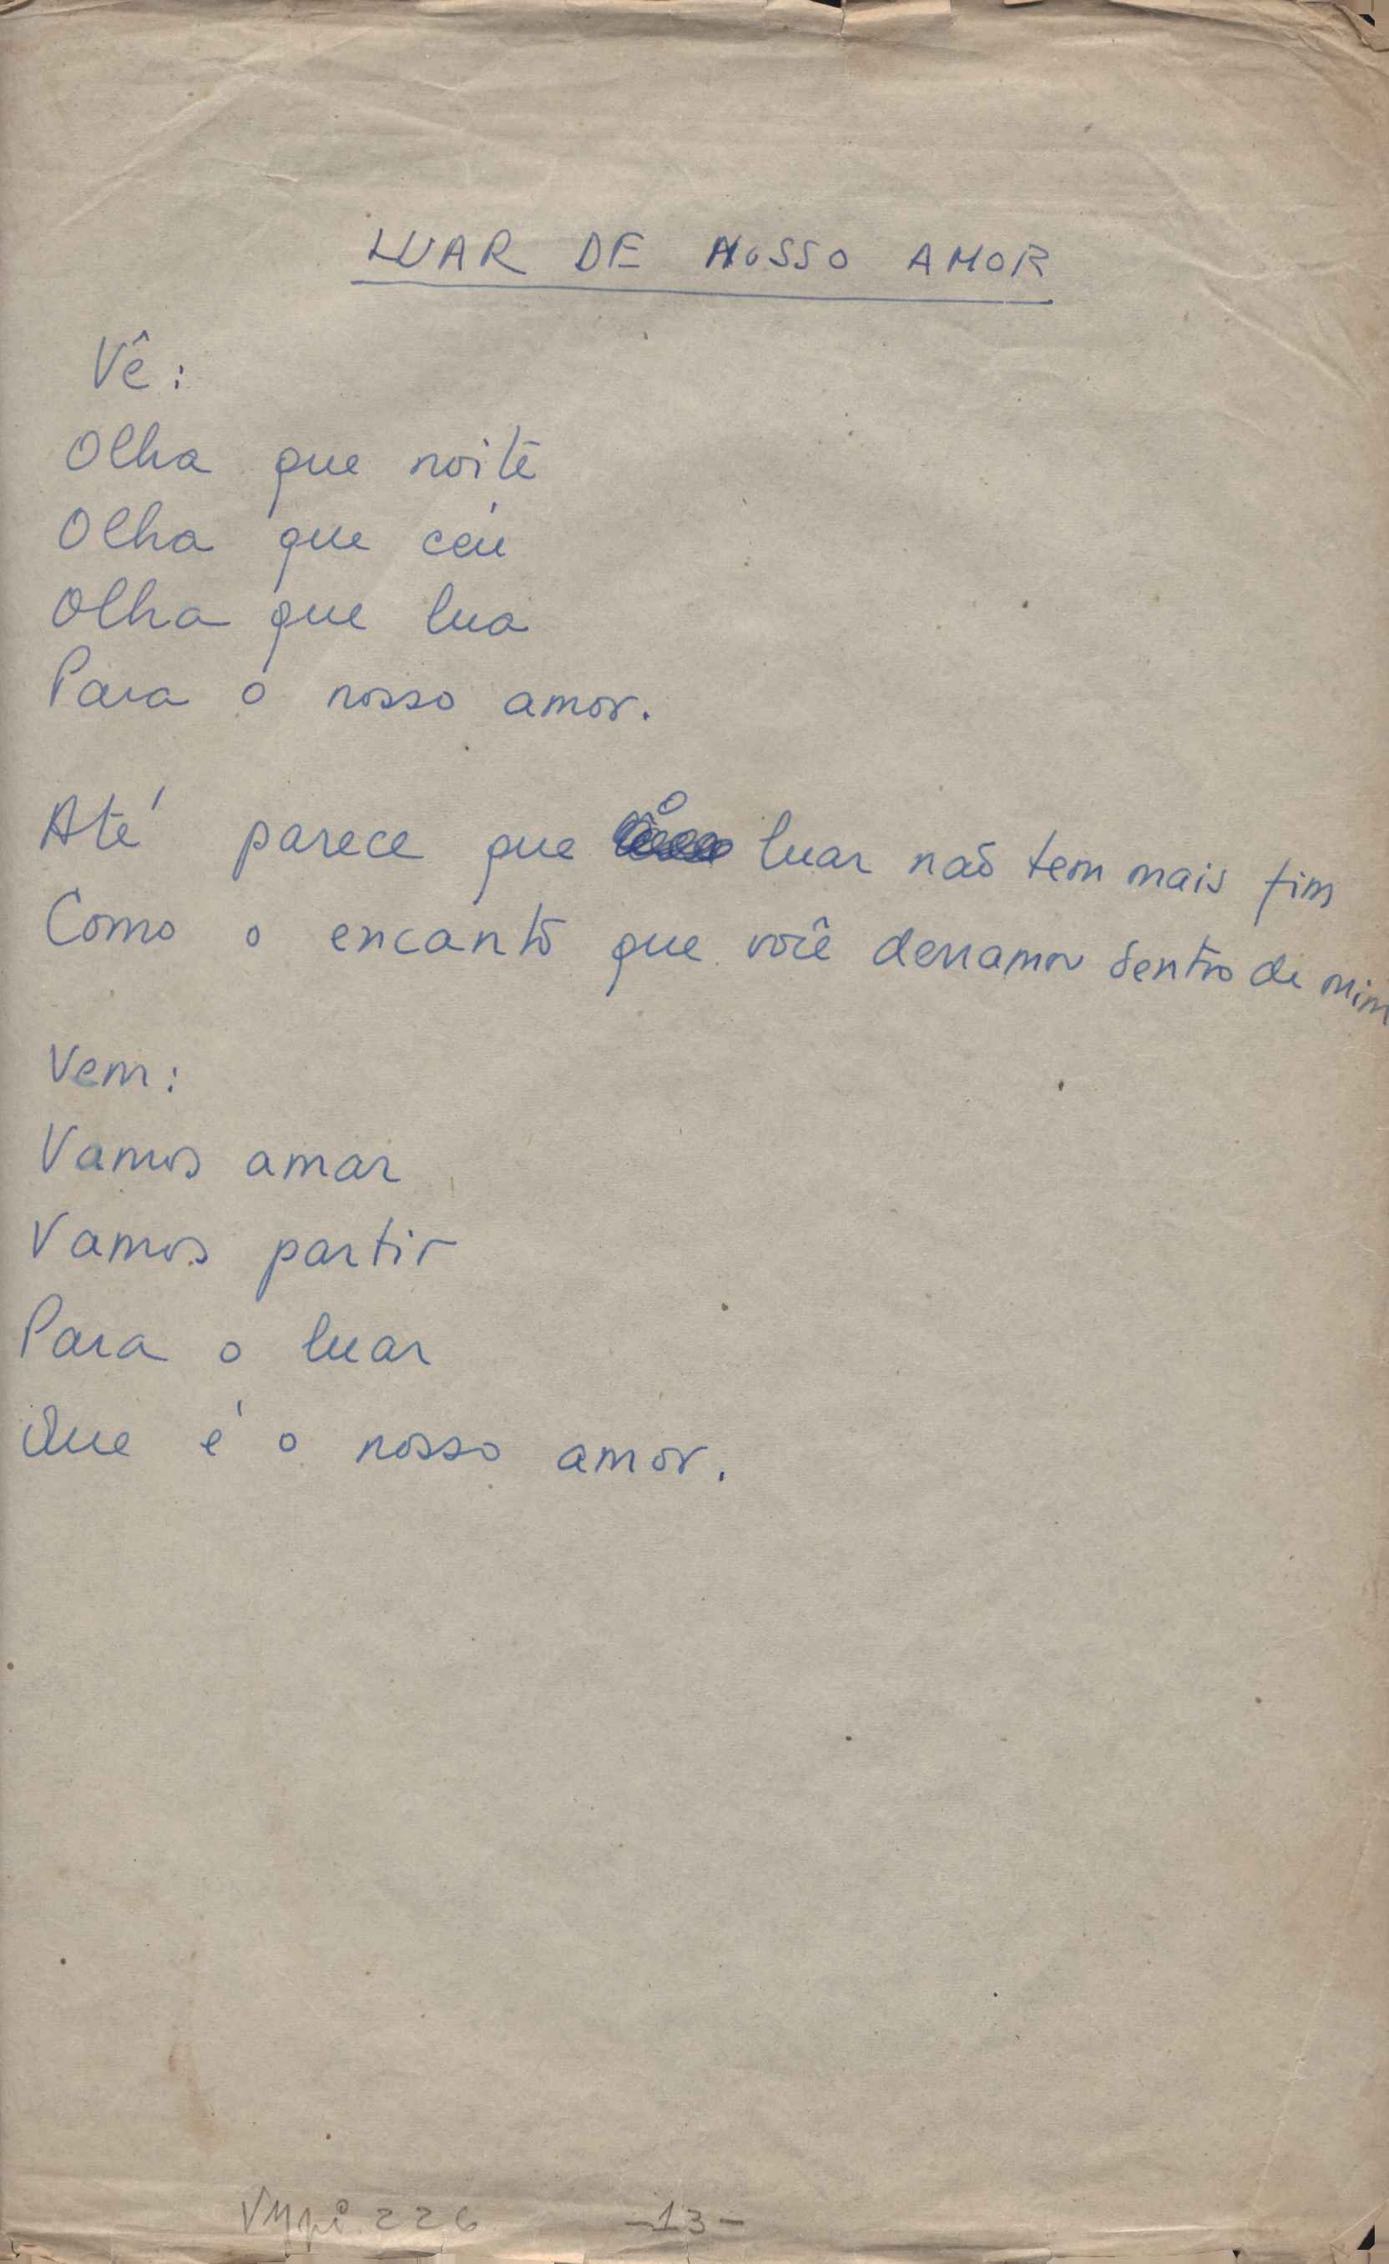 LUAR DE NOSSO AMOR
Vê:
Olha que noite
Olha que céu
Olha que lua
Para o nosso amor.
Até parece que o luar não tem mais fim
Como o encanto que você derramou dentro de mim
Vem:
Vamos amar
Vamos partir
Para o luar
Que é o nosso amor.
VMpi 226 -13-